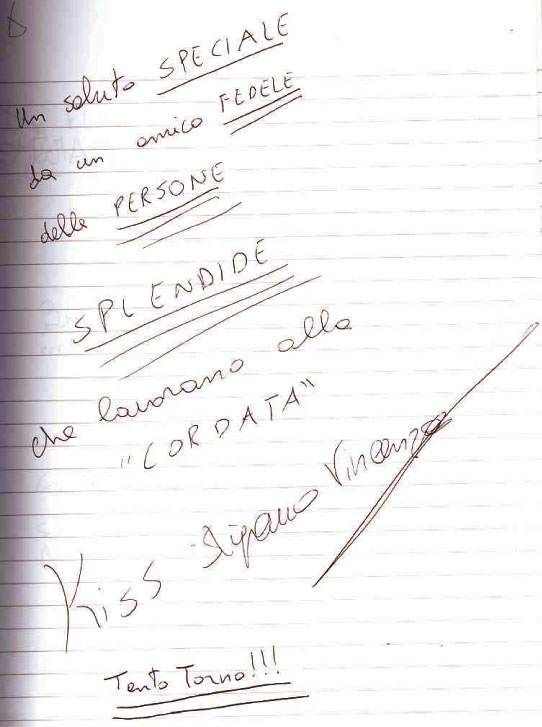 Un saluto SPECIALE
da un amico FEDELE
delle PERSONE
SPLENDIDE
che lavorano alla
"CORDATA"
Kiss Vincenzo
Tento Torno!!!